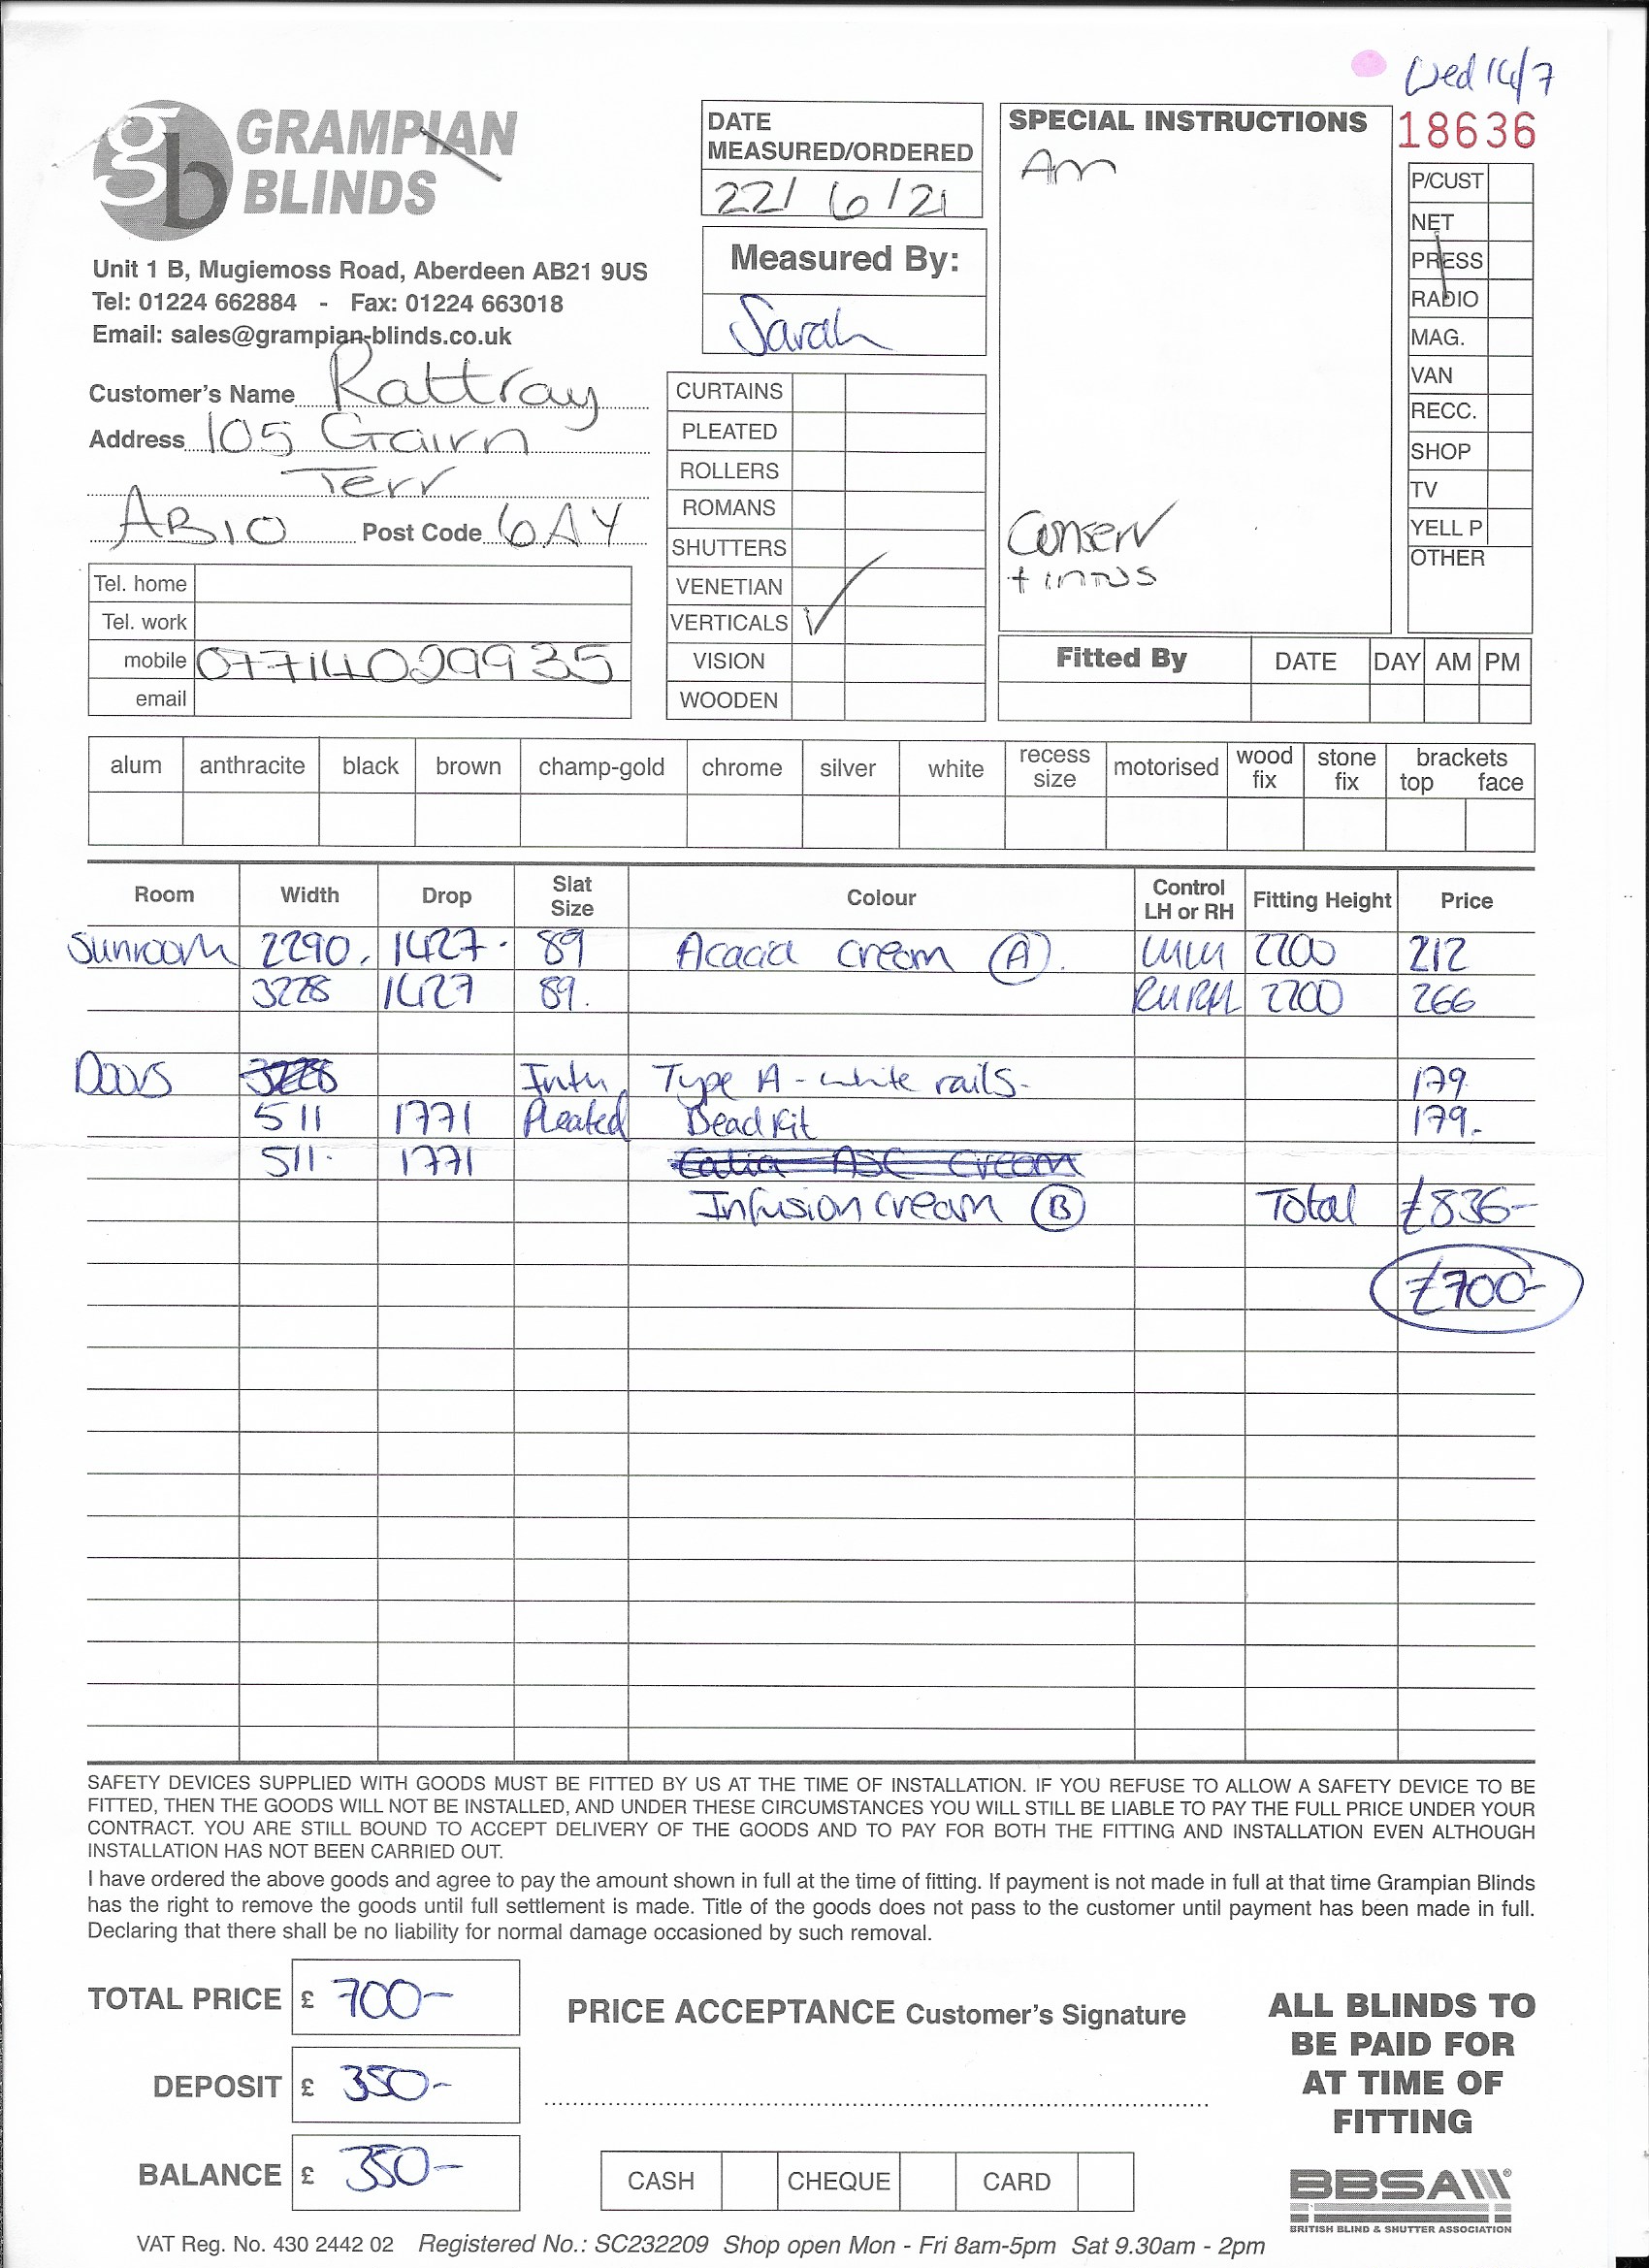 Wed 14/7
GRAMPIAN
BLINDS
Unit 1 B, Mugiemoss Road, Aberdeen AB21 9US
Tel: 01224 662884 - Fax: 01224 663018
Email: sales@grampian-blinds.co.uk
Customer's Name Rattray
Address 105 Gairn
Terr
AB10 Post Code 6AY
Tel. home
Tel. work
mobile 07714029935
email
DATE
MEASURED/ORDERED
22/6/21
Measured By:
Sarah
CURTAINS
PLEATED
ROLLERS
ROMANS
SHUTTERS
VENETIAN
VERTICALS ✓
VISION
WOODEN
SPECIAL INSTRUCTIONS
Am
Conserv
18636
P/CUST
NET
PRESS
RADIO
MAG.
VAN
RECC.
SHOP
TV
YELL P
OTHER
Fitted By DATE DAY AM PM
alum anthracite black brown champ-gold chrome silver white recess size motorised wood fix stone fix brackets top face
Room Width Drop Slat Size Colour Control LH or RH Fitting Height Price
Sunroom 2290. 1427. 89 Acacia cream (A). LHLH 2200 212
3228 1427 89. RHRH 2200 266
Doors 3228 Intu Type A - white rails. 179
511 1771 Pleated Bead Kit 179.
511. 1771 ASC Cream
Infusion cream (B) Total £836-
£700-
SAFETY DEVICES SUPPLIED WITH GOODS MUST BE FITTED BY US AT THE TIME OF INSTALLATION. IF YOU REFUSE TO ALLOW A SAFETY DEVICE TO BE
FITTED, THEN THE GOODS WILL NOT BE INSTALLED, AND UNDER THESE CIRCUMSTANCES YOU WILL STILL BE LIABLE TO PAY THE FULL PRICE UNDER YOUR
CONTRACT. YOU ARE STILL BOUND TO ACCEPT DELIVERY OF THE GOODS AND TO PAY FOR BOTH THE FITTING AND INSTALLATION EVEN ALTHOUGH
INSTALLATION HAS NOT BEEN CARRIED OUT.
I have ordered the above goods and agree to pay the amount shown in full at the time of fitting. If payment is not made in full at that time Grampian Blinds
has the right to remove the goods until full settlement is made. Title of the goods does not pass to the customer until payment has been made in full.
Declaring that there shall be no liability for normal damage occasioned by such removal.
TOTAL PRICE £ 700-
DEPOSIT £ 350-
BALANCE £ 350-
PRICE ACCEPTANCE Customer's Signature
CASH CHEQUE CARD
ALL BLINDS TO
BE PAID FOR
AT TIME OF
FITTING
BBSA
BRITISH BLIND & SHUTTER ASSOCIATION
VAT Reg. No. 430 2442 02 Registered No.: SC232209 Shop open Mon - Fri 8am-5pm Sat 9.30am - 2pm